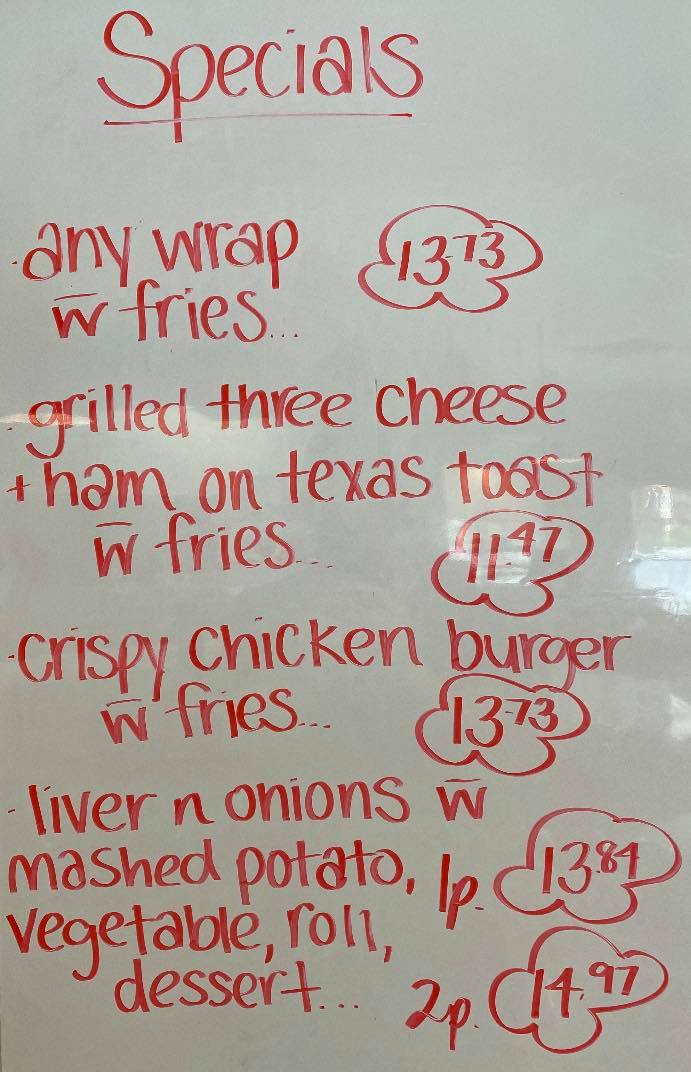 Specials
·any wrap 13.73
w̄ fries...
·grilled three cheese
+ ham on texas toast
w̄ fries... 11.47
·crispy chicken burger
w̄ fries... 13.73
·liver n onions w̄
mashed potato, 1p. 13.84
vegetable, roll,
dessert... 2p. 14.97